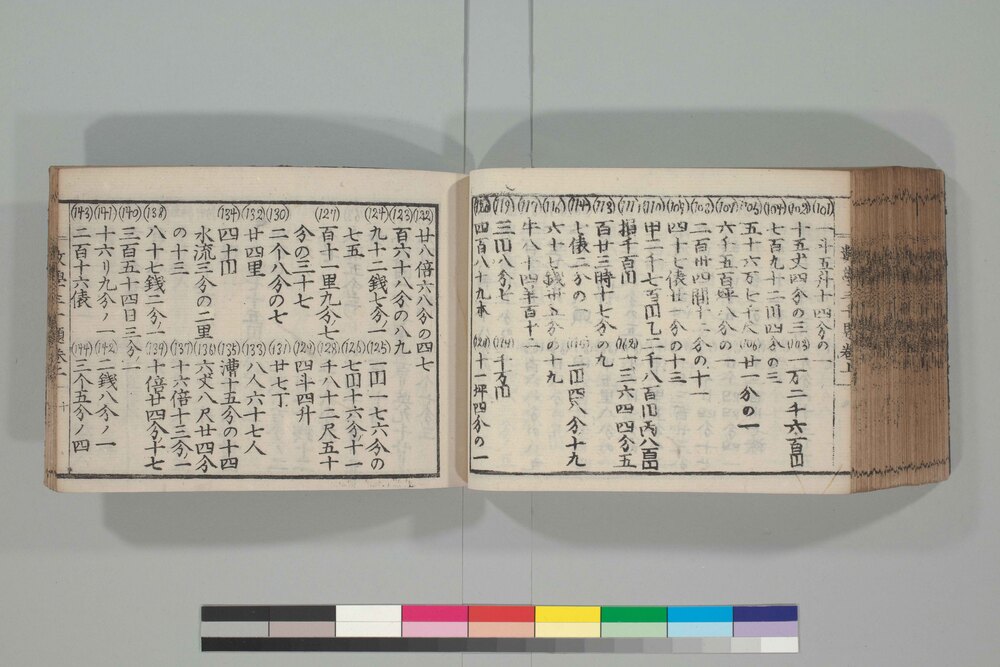 (101) 一斗五升十四分の
(102) 十五丈四分の三 (103) 一万二千六百円
(104) 七百九十二円四分の三
(105) 五十六万七千人 (106) 廿一分の一
(107) 六千五百坪八分の一
(108) 二百卅四間十二分の十一
(109) 四十七俵廿二分の十三
(110) 甲二千七百円乙二千八百円丙八百円
(111) 損千百円 (112) 一三六四四分五
(113) 百廿三時十七分の九
(114) 七俵二分の一 (115) 二円四八分十九
(116) 六十七銭卅五分の十九
(117) 牛八十四羊百十二
(118) 三円八分七 (119) 千万円
(120) 四百八十九本 (121) 十一坪四分の一
(122) 廿八倍六八分の四七
(123) 百六十八分の八九
(124) 九十二銭七分ノ一 (125) 一円一七六分の
七五 (126) 七円十六分十一
(127) 百十一里九分七 (128) 千八十二尺五十
分の三十七 (129) 四斗四升
(130) 二个八分の七 (131) 廿七丁
(132) 廿四里 (133) 八人六十七人
(134) 四十円 (135) 滞十五分の十四
水流三分の二里 (136) 六丈八尺廿四分
の十三 (137) 十六倍十三分一
(138) 八十七銭二分ノ一 (139) 十倍廿四分ノ十七
(140) 三百五十四日三分ノ一
(141) 十六り九分ノ一 (142) 二銭八分ノ一
(143) 二百十六俵 (144) 三个五分ノ四